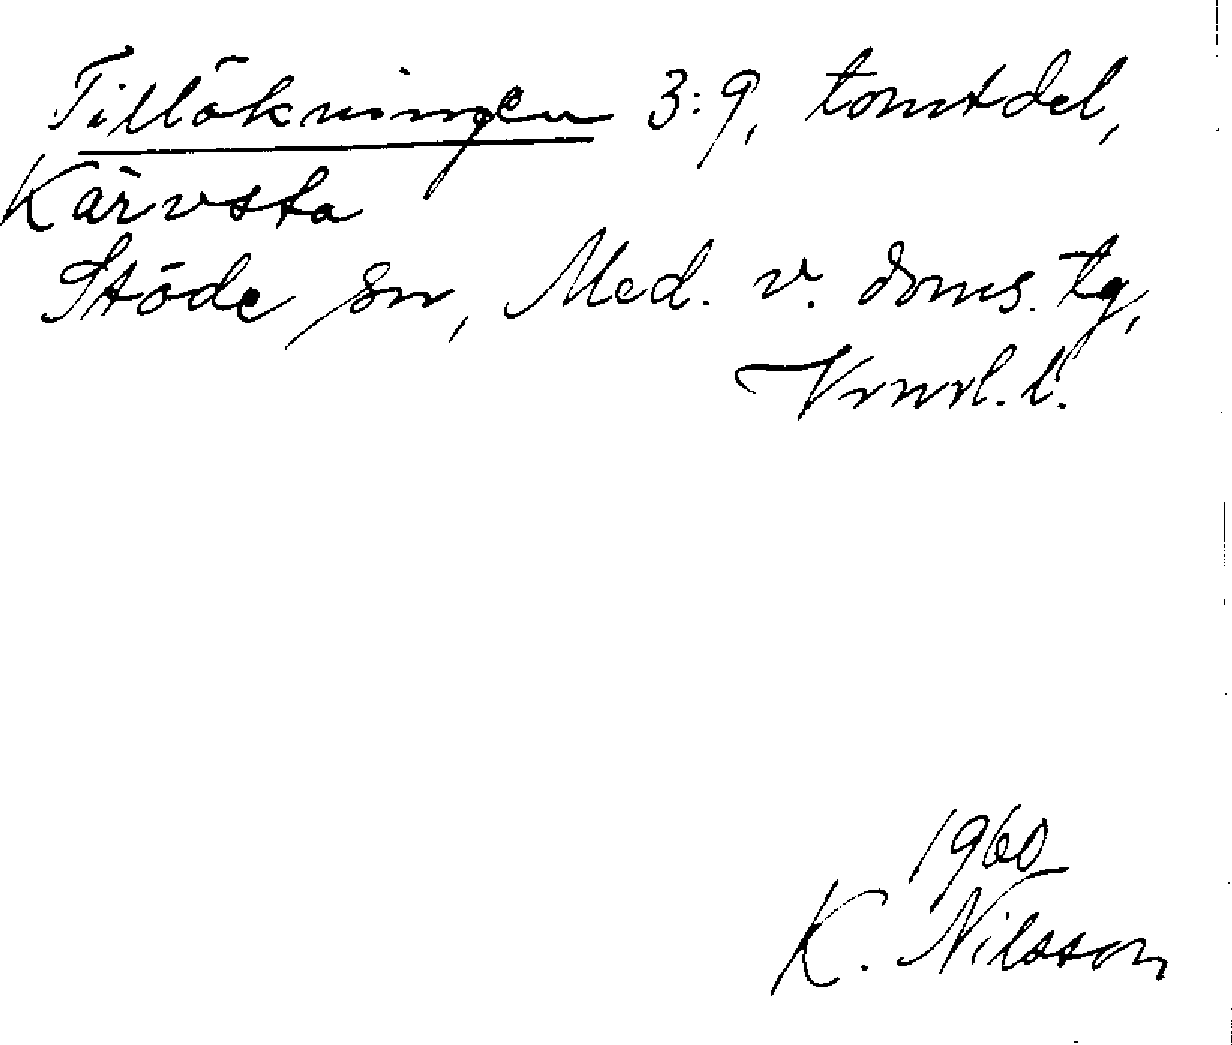 Tillökningen 3:9, tomtdel,
Kärvsta
Stöde sn, Med. v. doms. tg,
Vnrl. l.
1960
K. Nilsson